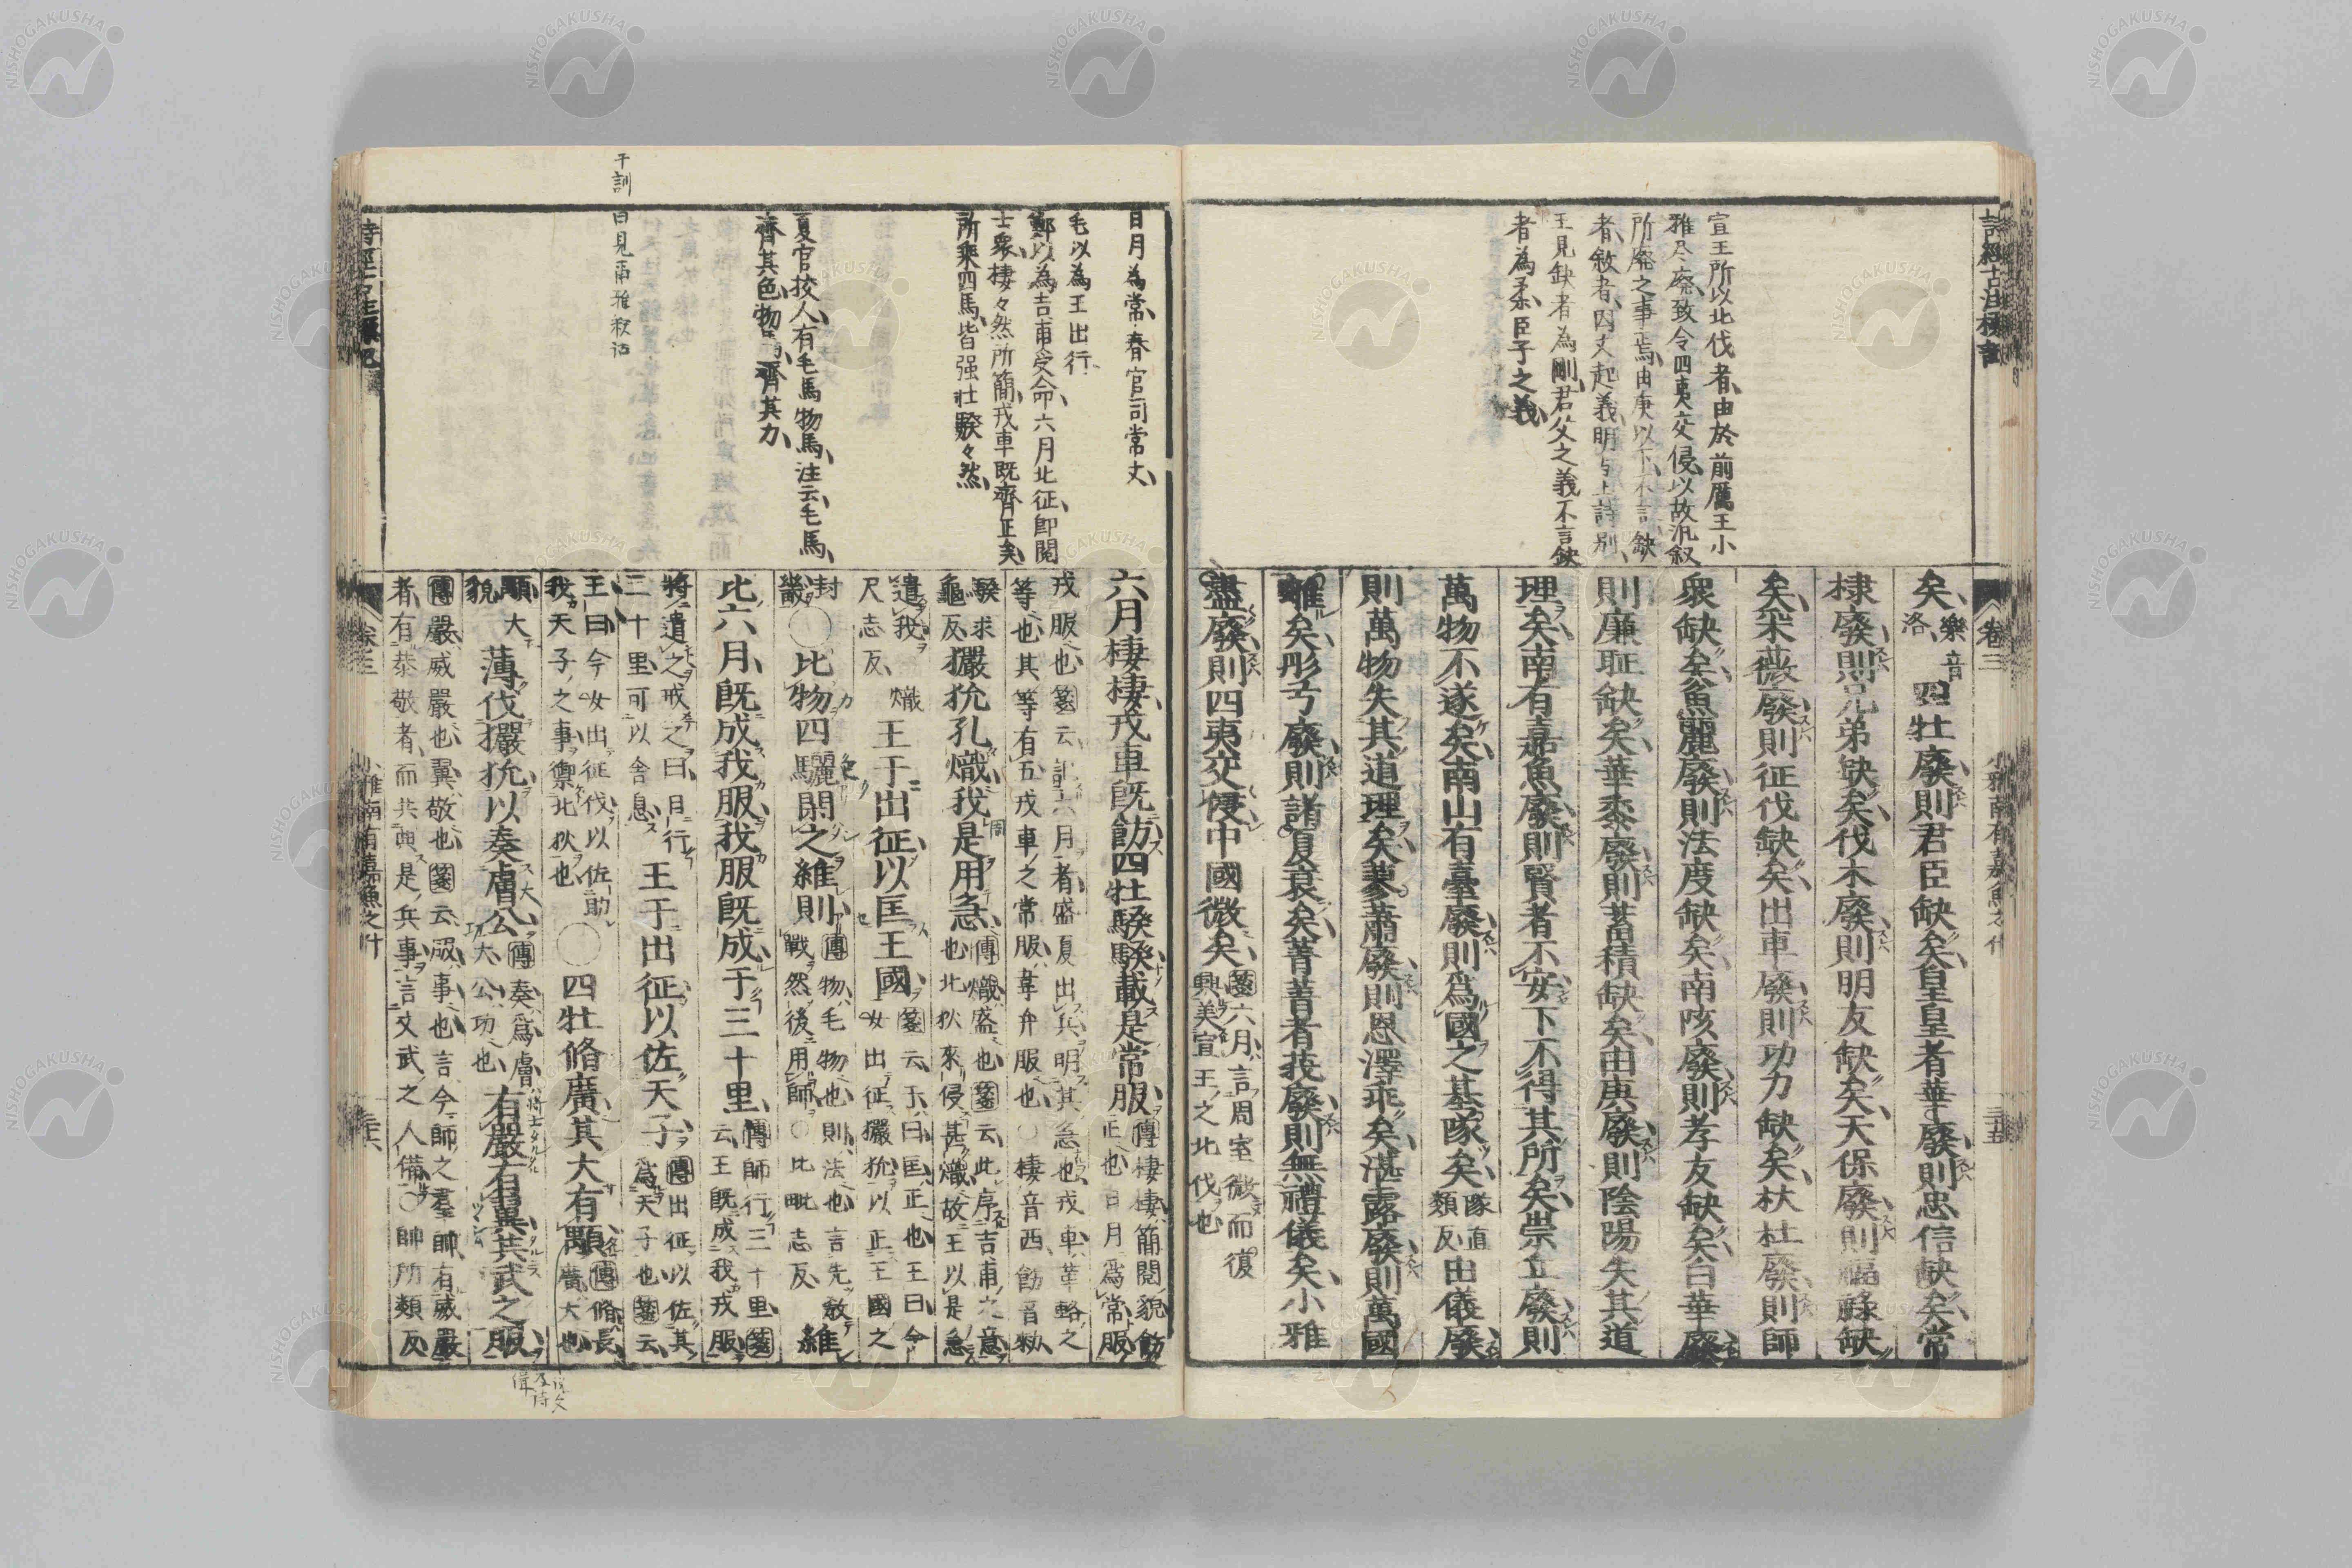 宣王所以北伐者、由於前厲王小
雅尽廃、致令四夷交侵、以故汎叙
所廃之事焉、由庚以下不言缺
者、敘者、因文起義、明与上詩別、
王見缺者為剛君父之義不言缺
者為柔臣子之義、
矣、樂音洛、四牡廢則君臣缺矣、皇皇者華廢則忠信缺矣、常
棣廢則兄弟缺矣、伐木廢則朋友缺矣、天保廢則福祿缺
矣、采薇廢則征伐缺矣、出車廢則功力缺矣、杕杜廢則師
衆缺矣、魚麗廢則法度缺矣、南陔廢則孝友缺矣、白華廢
則廉耻缺矣、華黍廢則蓄積缺矣、由庚廢則陰陽失其道
理矣、南有嘉魚廢則賢者不安、下不得其所矣、崇丘廢則
萬物不遂矣、南山有臺廢則爲國之基隊矣、隊直類反、由儀廢
則萬物失其道理矣、蓼蕭廢則恩澤乖矣、湛露廢則萬國
離矣、彤弓廢則諸夏衰矣、菁菁者莪廢則無禮儀矣、小雅
盡廢則四夷交侵中國微矣、
箋六月、言周室微而復
興美宣王之北伐也
卷三
小雅南有嘉魚之什
三十五
日月為常、春官司常文、
毛以為王出行、
鄭以為吉甫受命、六月北征、即閲
士衆、棲々然所簡、戎車既齊正矣、
所乘四馬、皆强壮騤々然、
夏官校人、有毛馬物馬、注云、毛馬、
齊其色、物馬、齊其力、
六月棲棲、戎車既飭、四牡騤騤、載是常服、
傳棲棲、簡閲貌、飭
正也、日月爲常、服
戎服也、箋云、記六月者、盛夏出兵、明其急也、戎車、革輅之
等也、其等有五、戎車之常服、韋弁服也、○棲音西、飭音勑、
騤求
龜反、
玁狁孔熾、我是用急、
傳熾、盛也、箋云、此序吉甫之意
也、北狄來侵甚熾、故王以是急
遣我、熾
尺志反、
王于出征、以匡王國、
箋云、于、曰、匡、正也、王曰、今
女出征玁狁、以正王國之
封
畿、
○比物四驪、閑之維則、
傳物、毛物也、則、法也、言先教
戰然後用師、○比毗志反、
維
比六月、既成我服、我服既成、于三十里、
傳師行三十里、箋
云、王既成我戎服、
將遣之、戒之曰、日行
三十里、可以舍息、
王于出征、以佐天子、
傳出征以佐其
爲天子也、箋云、
王曰、今女出征伐、以佐助
我天子之事、禦北狄也、
○四牡脩廣、其大有顒、
傳脩、長
廣、大也、
顒、大
貌、
薄伐玁狁、以奏膚公、
傳奏、爲、膚、
大、公、功也、
有嚴有翼、共武之服、
傳嚴、威嚴也、翼、敬也、箋云、服、事也、言今師之羣帥、有威嚴
者、有恭敬者、而共典是兵事、言文武之人備、○帥所類反、
小雅南有嘉魚之什